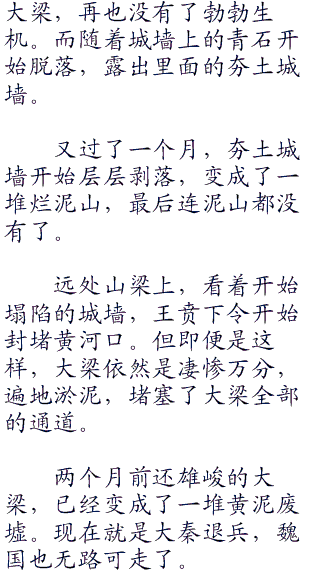 大梁，再也没有了勃勃生
机。而随着城墙上的青石开
始脱落，露出里面的夯土城
墙。
又过了一个月，夯土城
墙开始层层剥落，变成了一
堆烂泥山，最后连泥山都没
有了。
远处山梁上，看着开始
塌陷的城墙，王贲下令开始
封堵黄河口。但即便是这
样，大梁依然是凄惨万分，
遍地淤泥，堵塞了大梁全部
的通道。
两个月前还雄峻的大
梁，已经变成了一堆黄泥废
墟。现在就是大秦退兵，魏
国也无路可走了。